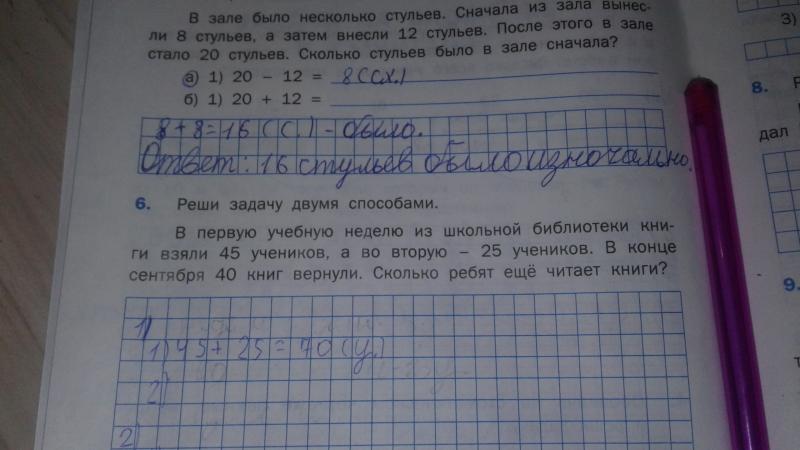 В зале было несколько стульев. Сначала из зала вынес-
ли 8 стульев, а затем внесли 12 стульев. После этого в зале
стало 20 стульев. Сколько стульев было в зале сначала?
а) 1) 20 – 12 = 8 (ст.)
б) 1) 20 + 12 =
8 + 8 = 16 (С.) – было.
Ответ: 16 стульев было изначально.
6. Реши задачу двумя способами.
В первую учебную неделю из школьной библиотеки кни-
ги взяли 45 учеников, а во вторую – 25 учеников. В конце
сентября 40 книг вернули. Сколько ребят ещё читает книги?
1)
1) 45 + 25 = 70 (у.)
2)
2)
3)
8.
дал
9.